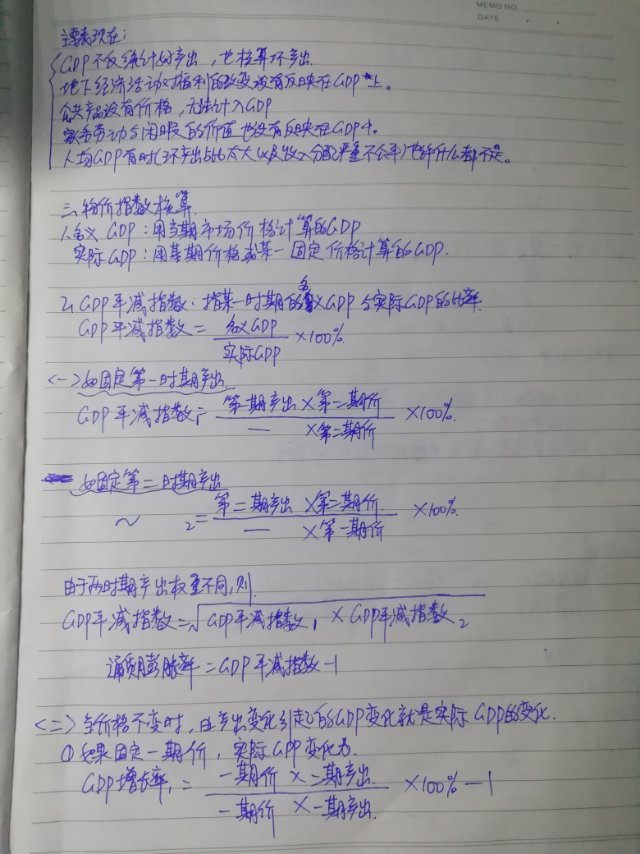 MEMO NO.
DATE
主要表现在:
GDP不仅统计好产出,也核算坏产出.
地下经济活动对福利的改变没有反映在GDP上。
公共产品没有价格,无法计入GDP
家务劳动与闲暇的价值也没有反映在GDP中.
人均GDP有时(坏产出占比太大以及收入分配严重不公平)也许什么都不是。
三、物价指数核算
1.名义GDP:用当期市场价格计算的GDP
实际GDP:用基期价格或某一固定价格计算的GDP.
2.GDP平减指数:指某一时期的名义GDP与实际GDP的比率.
GDP平减指数=名义GDP/实际GDP×100%.
<一>如固定第一时期产出
GDP平减指数1=第一期产出×第二期价/— ×第二期价×100%.
如固定第二时期产出
~ 2=第二期产出×第二期价/— ×第一期价×100%.
由于两时期产出权重不同,则.
GDP平减指数=√GDP平减指数1×GDP平减指数2
通货膨胀率=GDP平减指数-1
<二>当价格不变时,由产出变化引起的GDP变化就是实际GDP的变化.
①如果固定一期价,实际GDP变化为.
GDP增长率1=一期价×二期产出/一期价×一期产出×100%-1